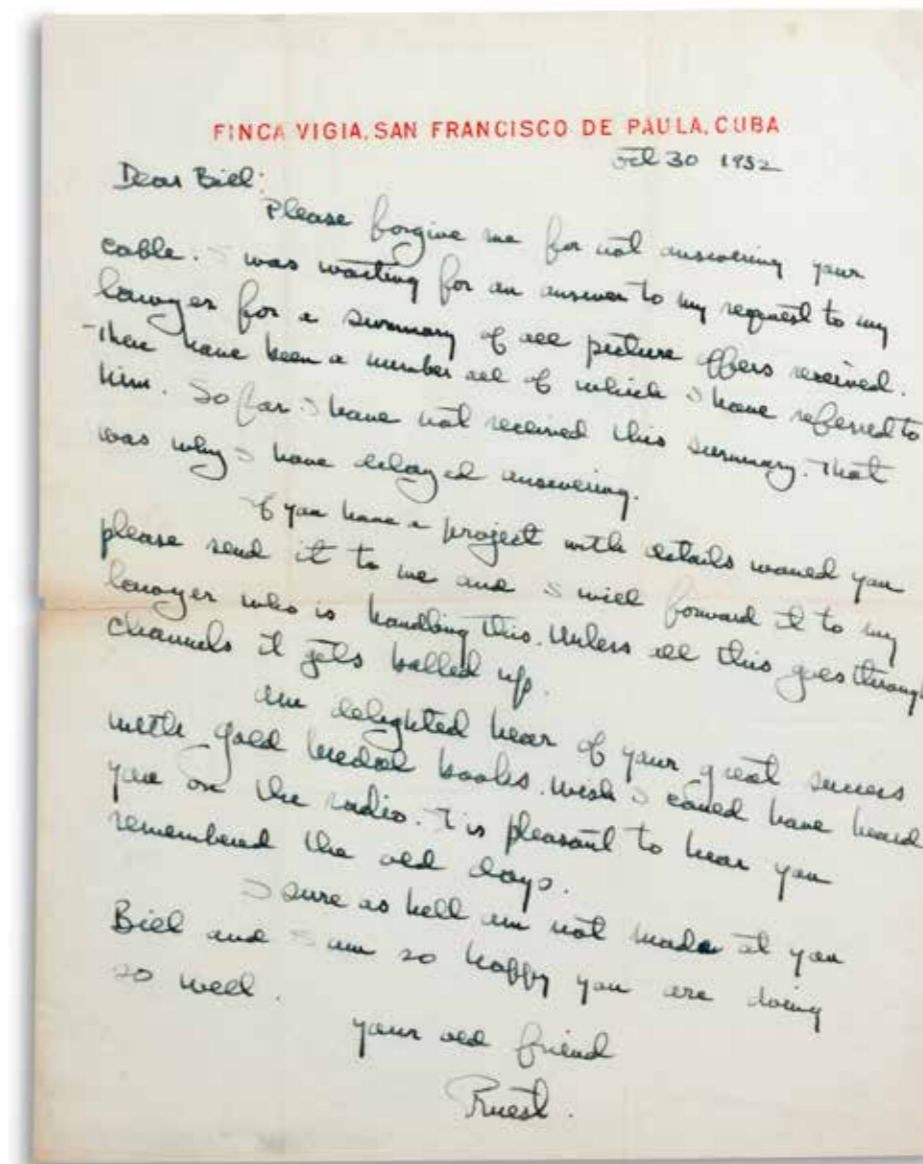 FINCA VIGIA, SAN FRANCISCO DE PAULA, CUBA
30 1952
Dear Bill:
Please forgive me for not answering your
cable. I was waiting for an answer to my request to my
lawyer for a summary of all picture offers received.
There have been a number all of which I have referred to
him. So far I have not received this summary. That
was why I have delayed answering.
If you have a project with details would you
please send it to me and I will forward it to my
lawyer who is handling this. Unless all this goes through
channels it gets balled up.
Am delighted hear of your great success
with gold medal books. Wish I could have heard
you on the radio. It is pleasant to hear you
remembered the old days.
I sure as hell am not mad at you
Bill and I am so happy you are doing
so well.
your old friend
Ernest.